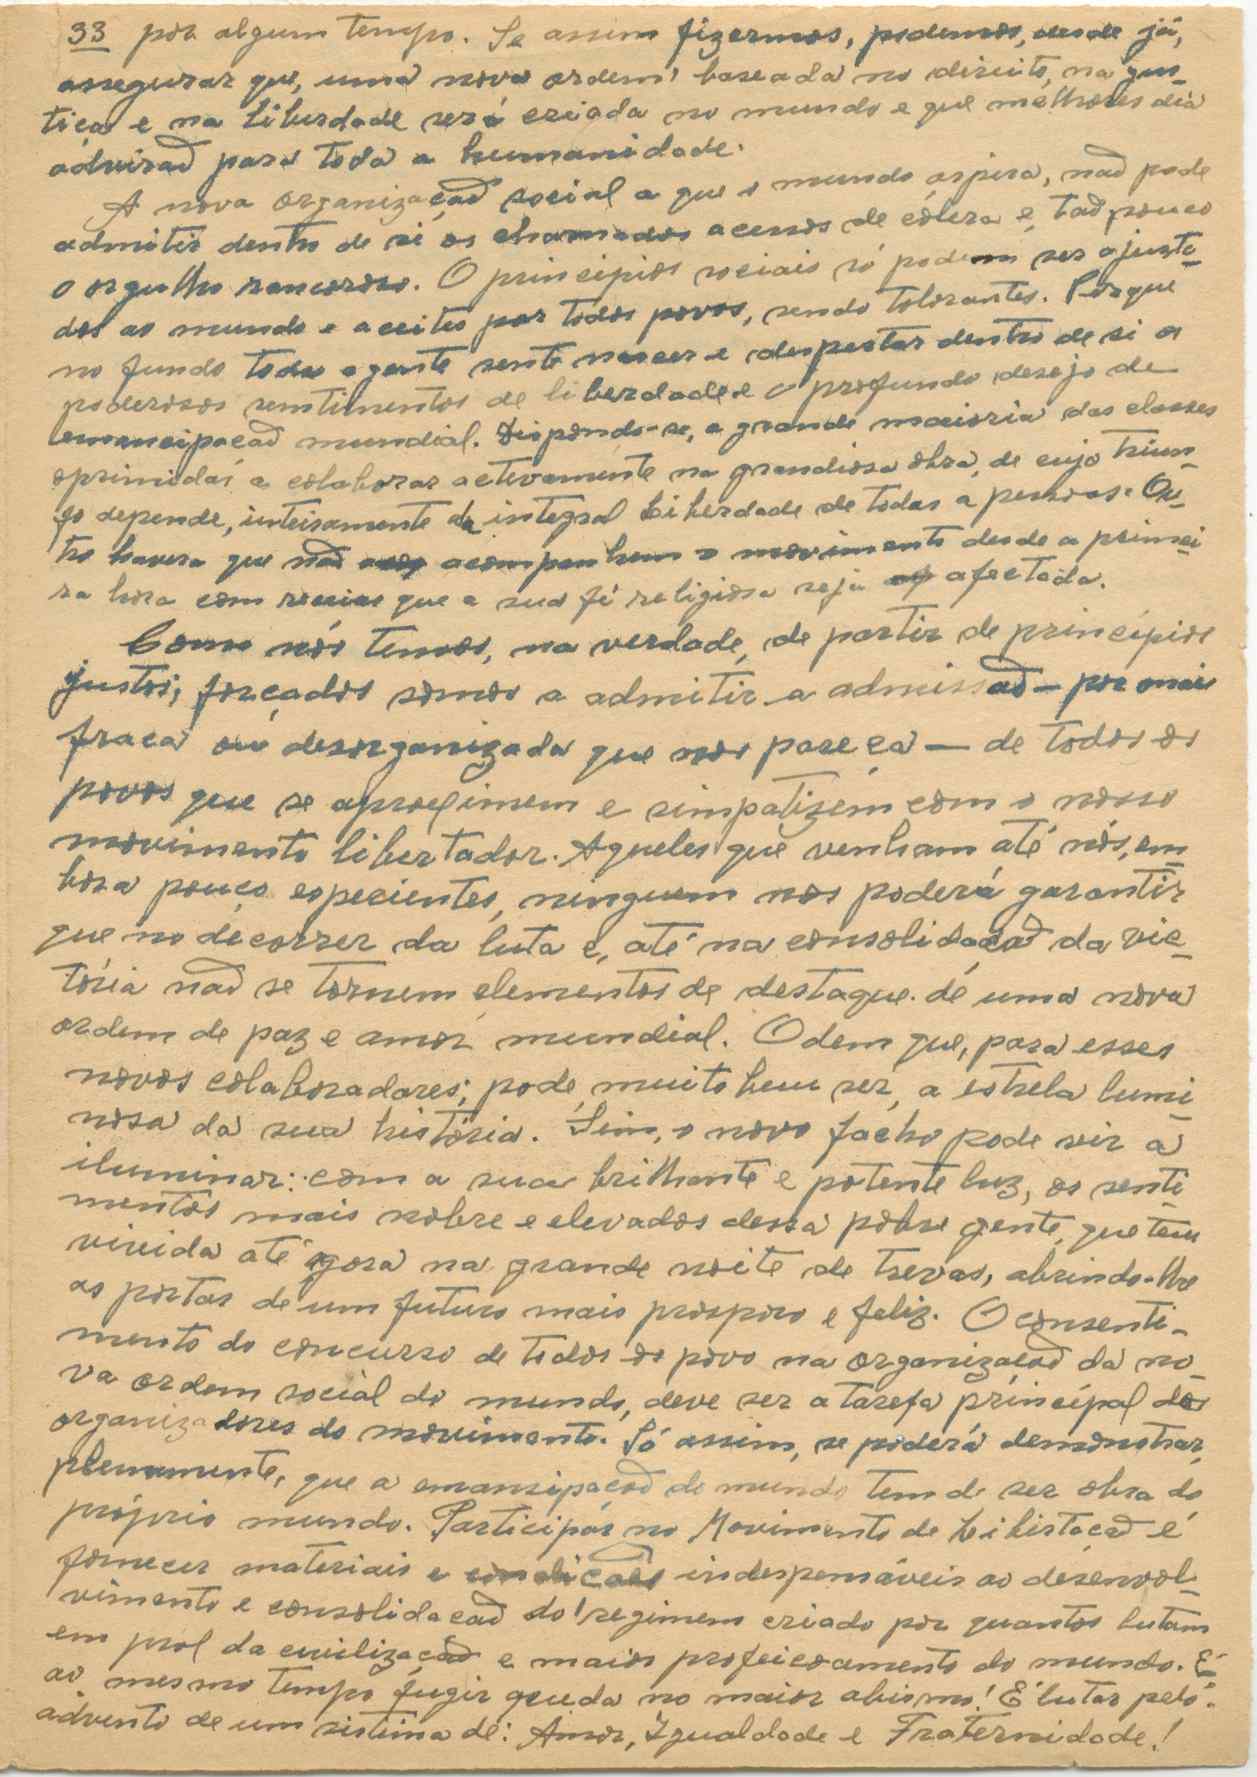 33 por algum tempo. Se assim fizermos, podemos, desde já,
assegurar que, uma nova ordem, baseada no direito, na jus-
tiça e na Liberdade será criada no mundo e que melhores dia
adviraõ para toda a humanidade.
A nova organizaçaõ social a que o mundo aspira, naõ pode
admitir dentro de si os chamados acessos de cólera e, taõ pouco
o orgulho rancoroso. O principios sociais só podem ser ajusta-
dos ao mundo e aceites por todos povos, sendo tolerantes. Porque
no fundo toda a gente sente nascer e despertar dentro de si os
poderosos sentimentos de liberdade e o profundo desejo de
emancipaçaõ mundial. Dispondo-se, a grande maioria das classes
oprimidas a colaborar activamente na grandiosa obra, de cujo triun-
fo depende, inteiramente da integral Liberdade de todas a pessoas. Ou-
tro havera que naõ acompanhem o movimento desde a primei-
ra hora com receios que a sua fé religiosa seja afectada.
Como nós temos, na verdade, de partir de princípios
justos, forçados somos a admitir a admissaõ — por mais
fraca ou desorganizada que nos pareça — de todos os
povos que se aproximem e simpatizem com o nosso
movimento libertador. Aqueles que venham até nós, em-
bora pouco experientes, ninguem nos poderá garantir
que no decorrer da luta e, até na consolidaçaõ da vic-
tória naõ se tornem elementos de destaque de uma nova
ordem de paz e amor mundial. Odem que, para esses
novos colaboradores, pode, muito bem ser, a estrela lumi-
nosa da sua história. Sim, o novo facho pode vir a
iluminar: com a sua brilhante e potente luz, os senti-
mentos mais nobre e elevados dessa pobre gente, que tem
vivida até agora na grande noite de trevas, abrindo-lhe
as portas de um futuro mais prospero e feliz. O consenti-
mento do concurso de todos os povo na organizaçaõ da no-
va ordem social do mundo, deve ser a tarefa principal dos
organizadores do movimento. Só assim, se poderá demonstrar,
plenamente, que a emancipaçaõ do mundo tem de ser obra do
próprio mundo. Participar no Movimento de Libertaçaõ é
fornecer materiais e condiçoẽs indespensáveis ao desenvol-
vimento e consolidaçaõ do regimem criado por quantos lutam
em prol da civilizaçaõ e maior profeicoamento do mundo. É
ao mesmo tempo fugir queda no maior abismo! É lutar pelo
advento de um sistima de: Amor, Igualdade e Fraternidade!